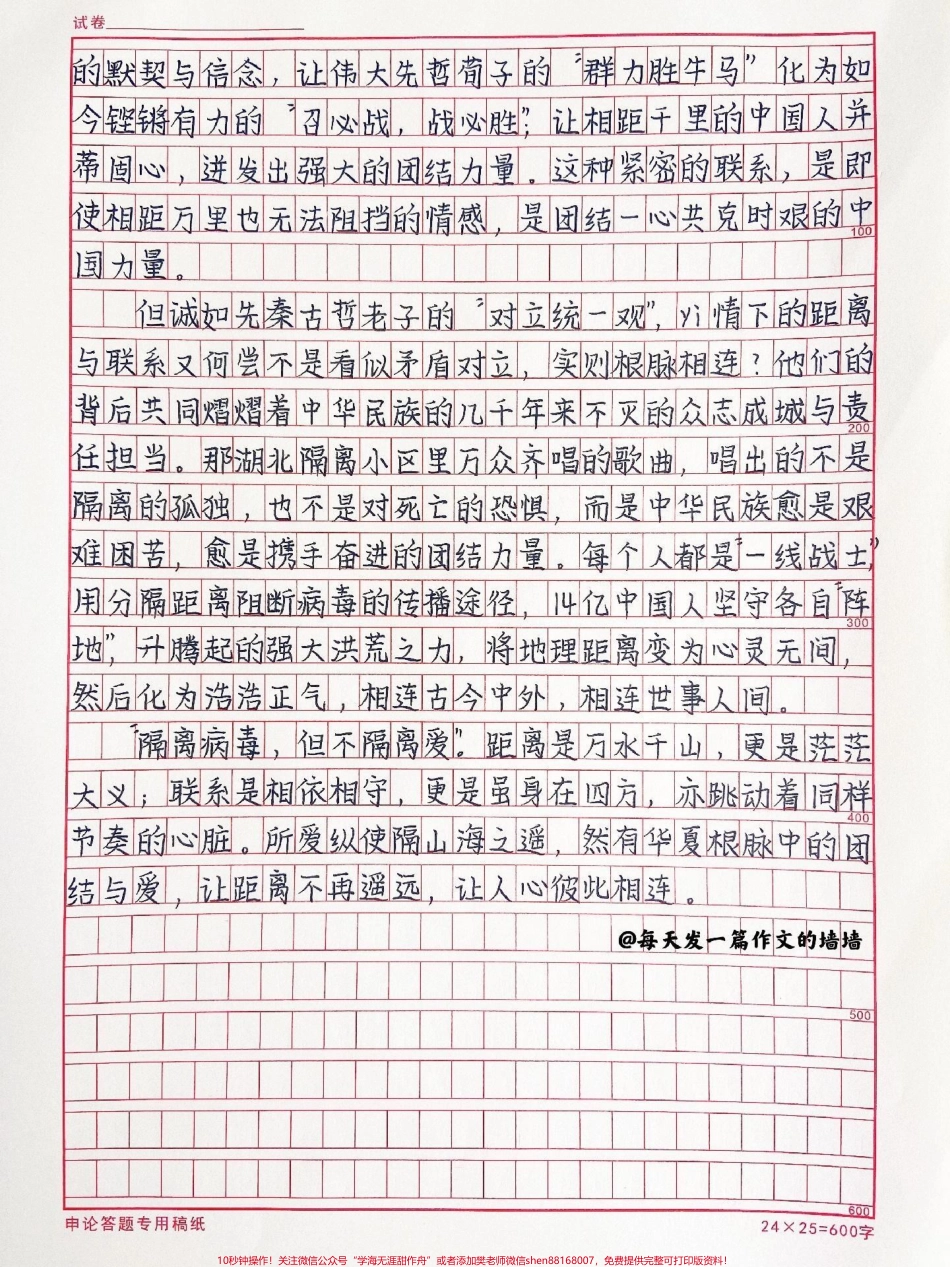 试卷
的默契与信念，让伟大先哲荀子的“群力胜牛马”化为如
今铿锵有力的“召必战，战必胜”；让相距千里的中国人并
蒂固心，迸发出强大的团结力量。这种紧密的联系，是即
使相距万里也无法阻挡的情感，是团结一心共克时艰的中
100
国力量。
但诚如先秦古哲老子的“对立统一观”，yi情下的距离
与联系又何尝不是看似矛盾对立，实则根脉相连？他们的
背后共同熠熠着中华民族的几千年来不灭的众志成城与责
200
任担当。那湖北隔离小区里万众齐唱的歌曲，唱出的不是
隔离的孤独，也不是对死亡的恐惧，而是中华民族愈是艰
难困苦，愈是携手奋进的团结力量。每个人都是“一线战士”，
用分隔距离阻断病毒的传播途径，14亿中国人坚守各自“阵
300
地”，升腾起的强大洪荒之力，将地理距离变为心灵无间，
然后化为浩浩正气，相连古今中外，相连世事人间。
“隔离病毒，但不隔离爱”。距离是万水千山，更是茫茫
大义；联系是相依相守，更是虽身在四方，亦跳动着同样
400
节奏的心脏。所爱纵使隔山海之遥，然有华夏根脉中的团
结与爱，让距离不再遥远，让人心彼此相连。
@每天发一篇作文的墙墙
500
600
申论答题专用稿纸 24×25=600字
10秒钟操作！关注微信公众号“学海无涯甜作舟”或者添加樊老师微信shen88168007，免费提供完整可打印版资料！